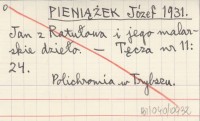 PIENIĄŻEK Józef 1931.
Jan z Ratułowa i jego malar-
skie dzieło. — Tęcza nr 11:
24.
Polichromia w Trybszu.
BI/040/0232